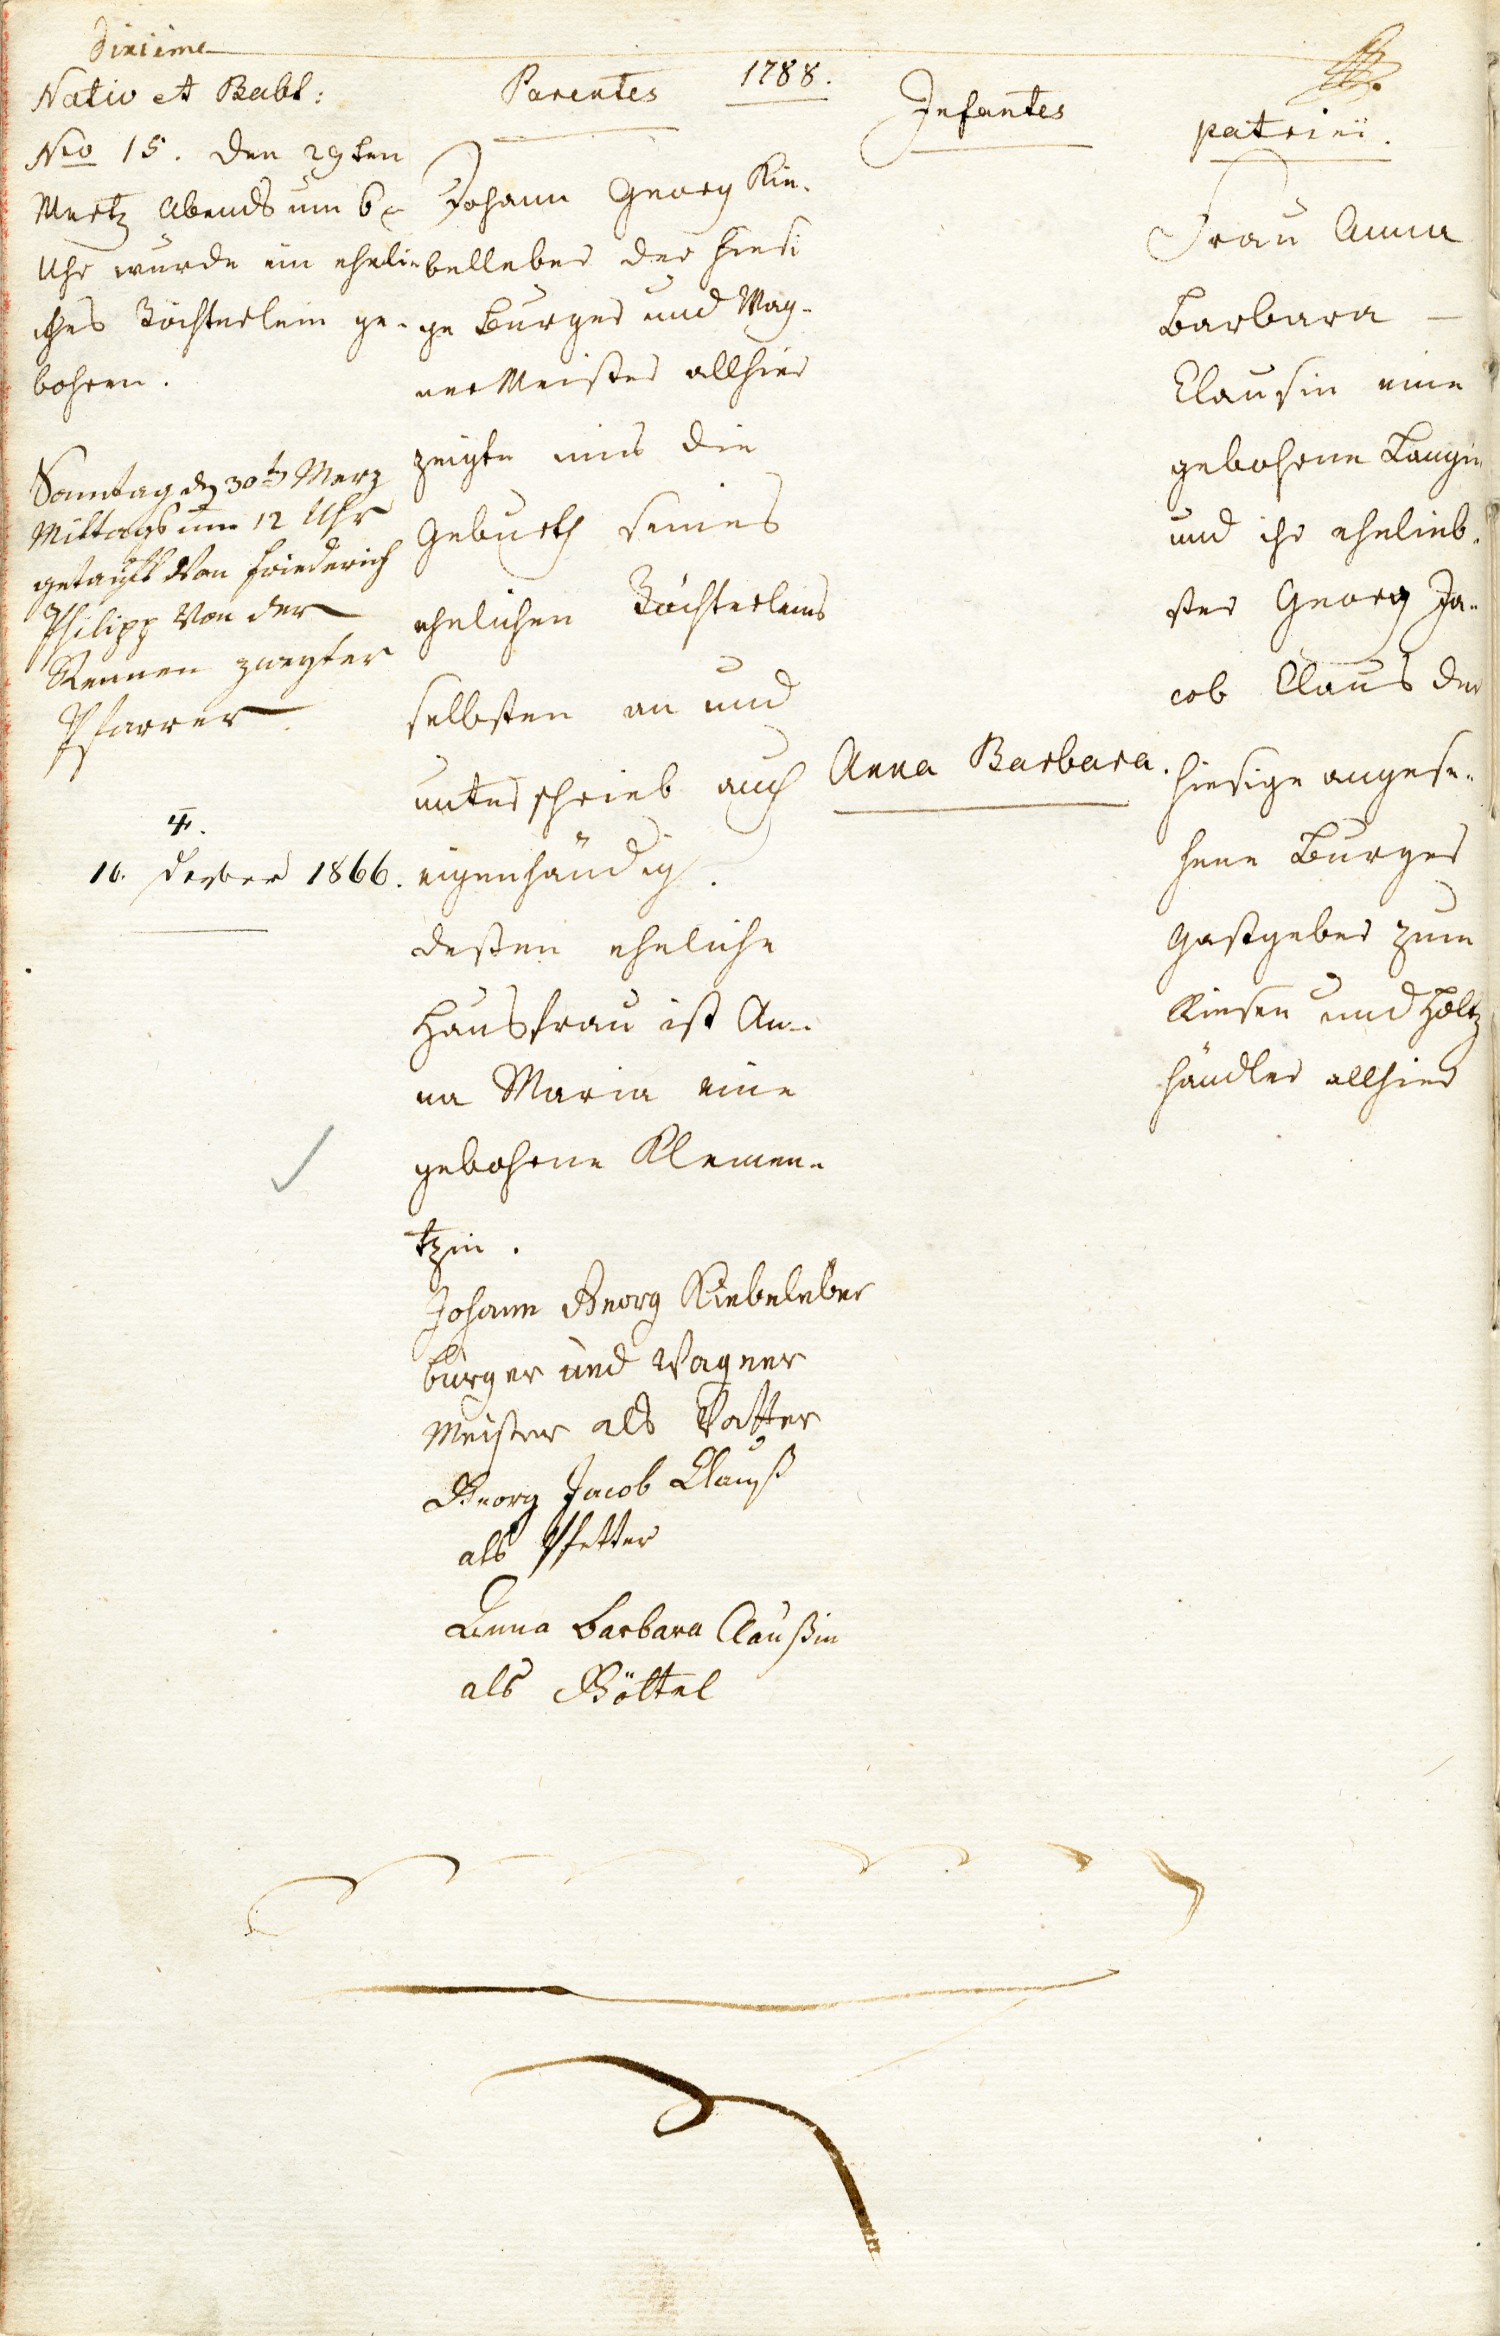 dixieme
1788.
Nativ et Babt:
Nro 15. den 29ten
Mertz Abends um 6
Uhr wurde ein eheli-
ches Töchterlein ge-
bohren.
Sonntag den 30ten Merz
Mittags um 12 Uhr
getauft Von Friederich
Philipp Von der
Rennen zweyter
Pfarrer
16. Decber 1866.
Parentes
Johann Georg Kie-
belleber der hiesi
ge Burger und Wag-
ner Meister allhier
zeigte mir die
Geburth seines
ehelichen Töchterleins
selbsten an und
unterschrieb auch
eigenhändig.
deßen eheliche
Hausfrau ist An-
na Maria eine
gebohrne Klemen-
tzin.
Johann Georg Kiebeleber
burger und Wagner
Meister als Vatter
Georg Jacob Clauß
als Pfetter
Anna barbara Claußin
als Göttel
Infantes
Anna Barbara.
patrini.
Frau Anna
Barbara -
Clausin eine
gebohrne Langin
und ihr ehelieb-
ster Georg Ja-
cob Claus der
hiesige angese-
hene Burger
Gastgeber zum
Riesen und Holtz
händler allhier